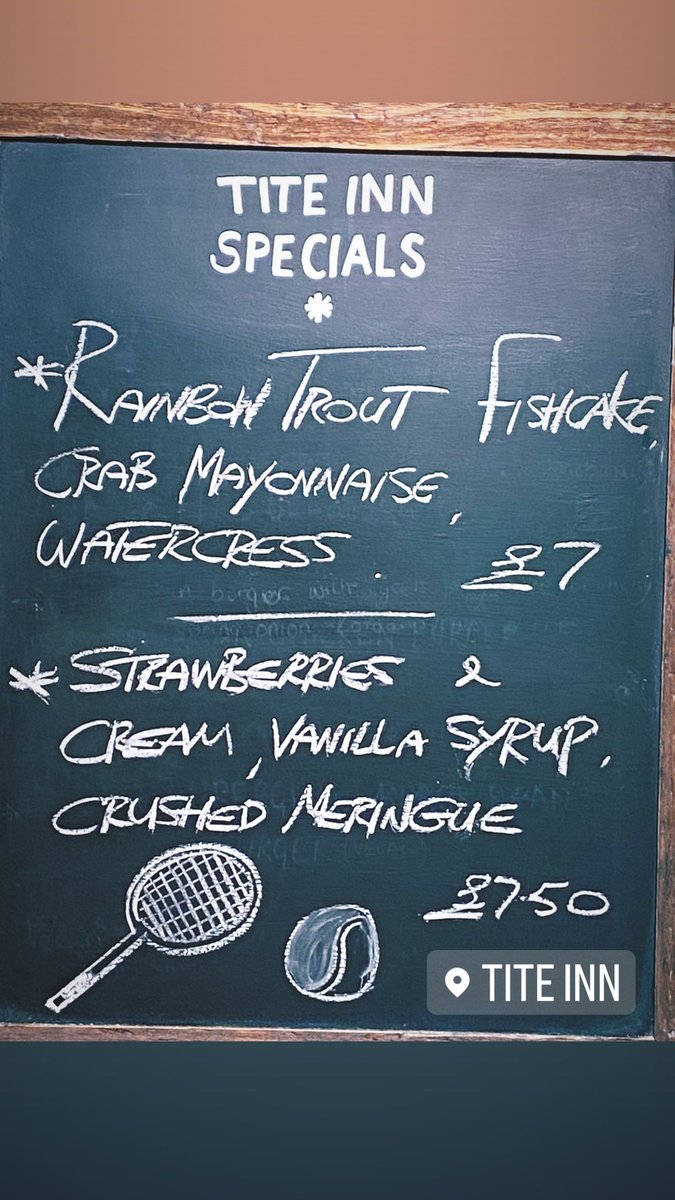 TITE INN
SPECIALS
*RAINBOW TROUT FISHCAKE,
CRAB MAYONNAISE,
WATERCRESS. £7
*STRAWBERRIES &
CREAM, VANILLA SYRUP,
CRUSHED MERINGUE
£7.50
TITE INN